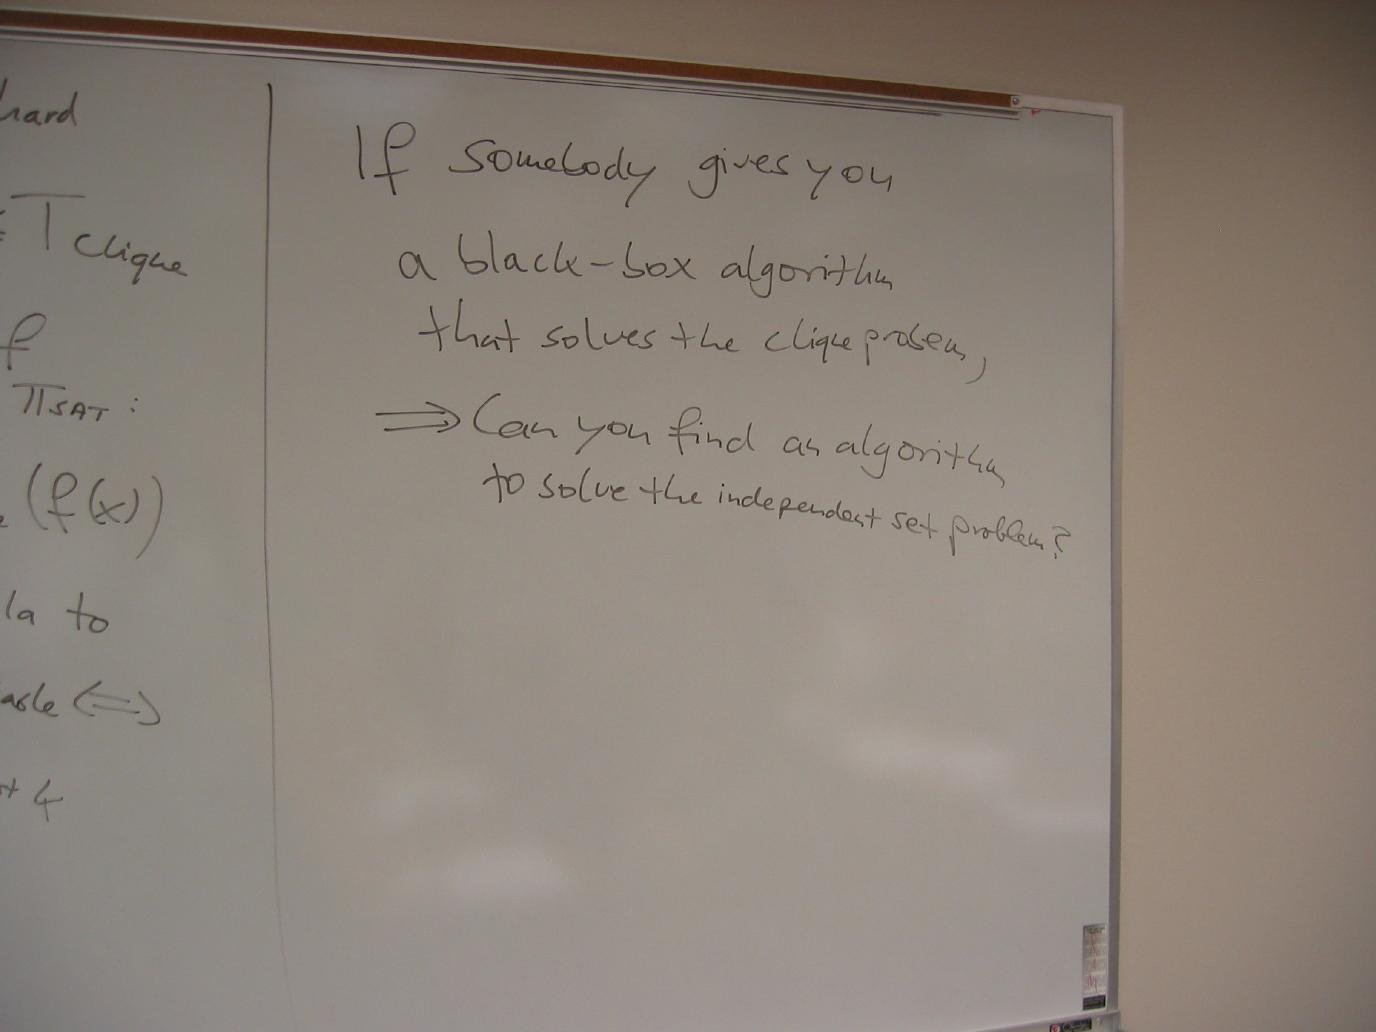 hard
= T clique
f
ΠSAT :
(f(x))
la to
able <=>
4
If somebody gives you
a black-box algorithm
that solves the clique problem,
=> Can you find an algorithm
to solve the independent set problem?